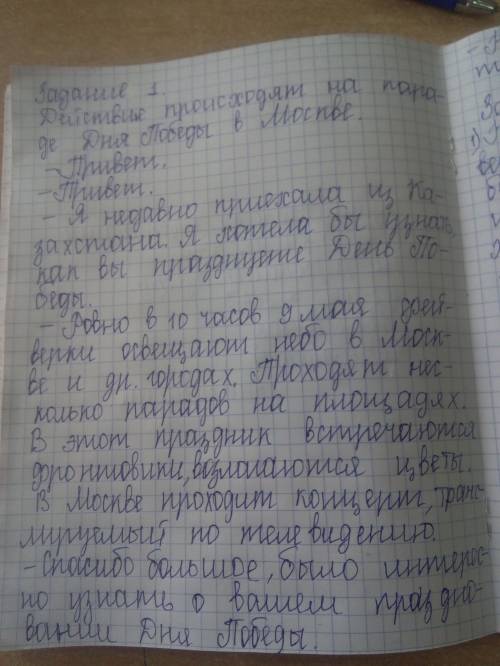 Задание 1.
Действие происходят на пара-
де Дня Победы в Москве.
-Привет.
-Привет.
- Я недавно приехала из Ка-
захстана. Я хотела бы узнать,
как вы празднуете День По-
беды.
- Ровно в 10 часов 9 мая фей-
верки освещают небо в Моск-
ве и др. городах. Проходят нес-
колько парадов на площадях.
В этот праздник встречаются
фронтовики, возлагаются цветы.
В Москве проходит концерт, транс-
лируемый по телевидению.
-Спасибо большое, было интерес-
но узнать о вашем праздно-
вании Дня Победы.